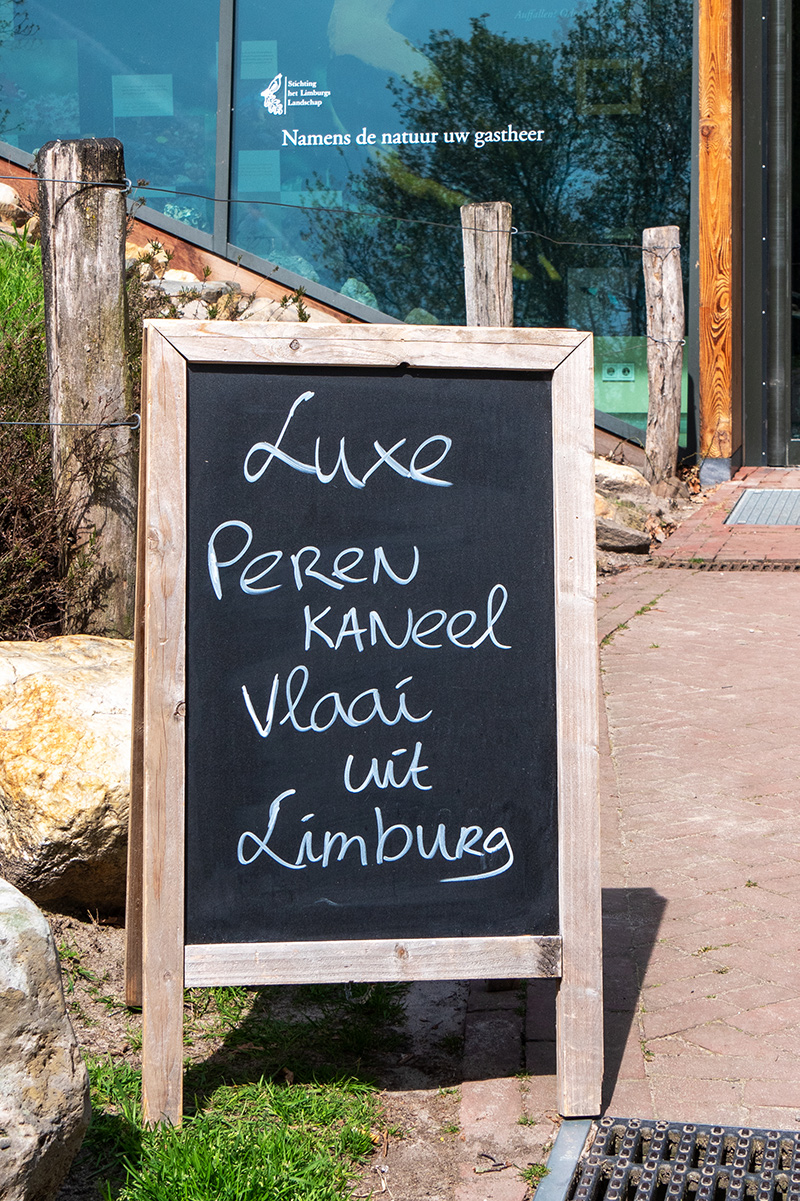 Stichting
het Limburgs
Landschap
Namens de natuur uw gastheer
Luxe
Peren
Kaneel
Vlaai
uit
Limburg